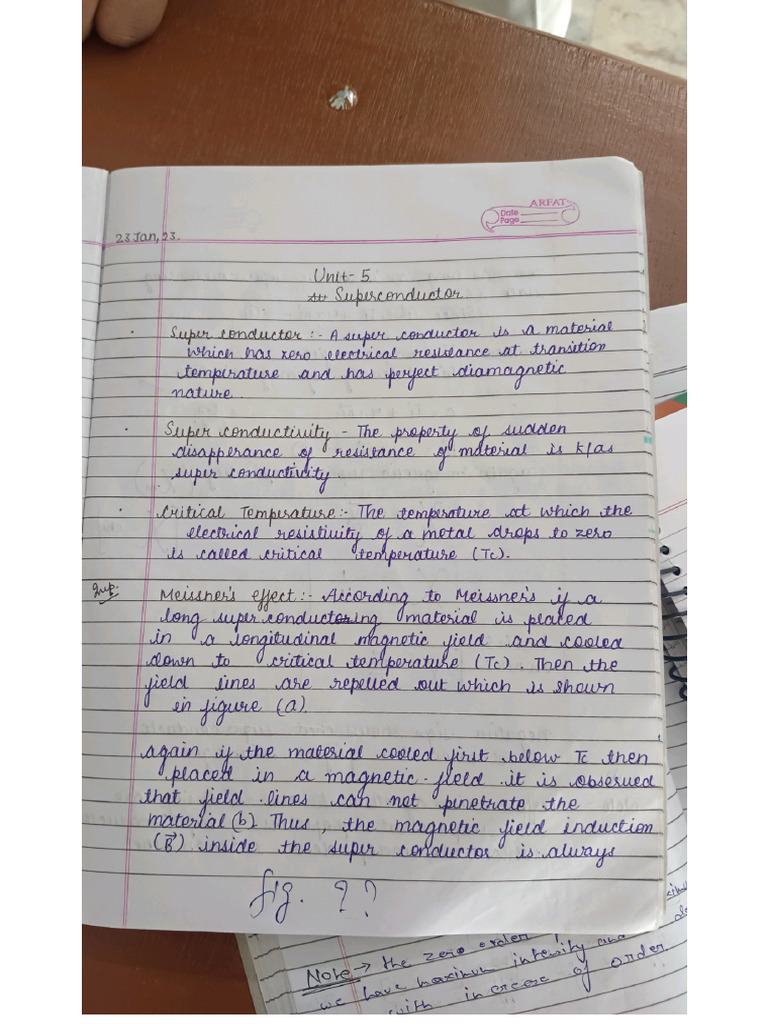 ARFAT
Date
Page
23 Jan, 23.
Unit-5
Superconductor
Super conductor :- A super conductor is a material
which has zero electrical resistance at transition
temperature and has perfect diamagnetic
nature.
Super conductivity - The property of sudden
disapperance of resistance of material is k/as
super conductivity
Critical Temperature:- The temperature at which the
electrical resistivity of a metal drops to zero
is called critical temperature (Tc).
Imp. Meissner's effect:- According to Meissner's if a
long super conductoring material is placed
in a longitudinal magnetic field and cooled
down to critical temperature (Tc). Then the
field lines are repelled out which is shown
in figure (a).
again if the material cooled first below Tc then
placed in a magnetic field it is observed
that field lines can not penetrate the
material (b) Thus, the magnetic field induction
(B⃗) inside the super conductor is always
fig. ??
Note → the zero order
we have maximum intensity and
with increase of order